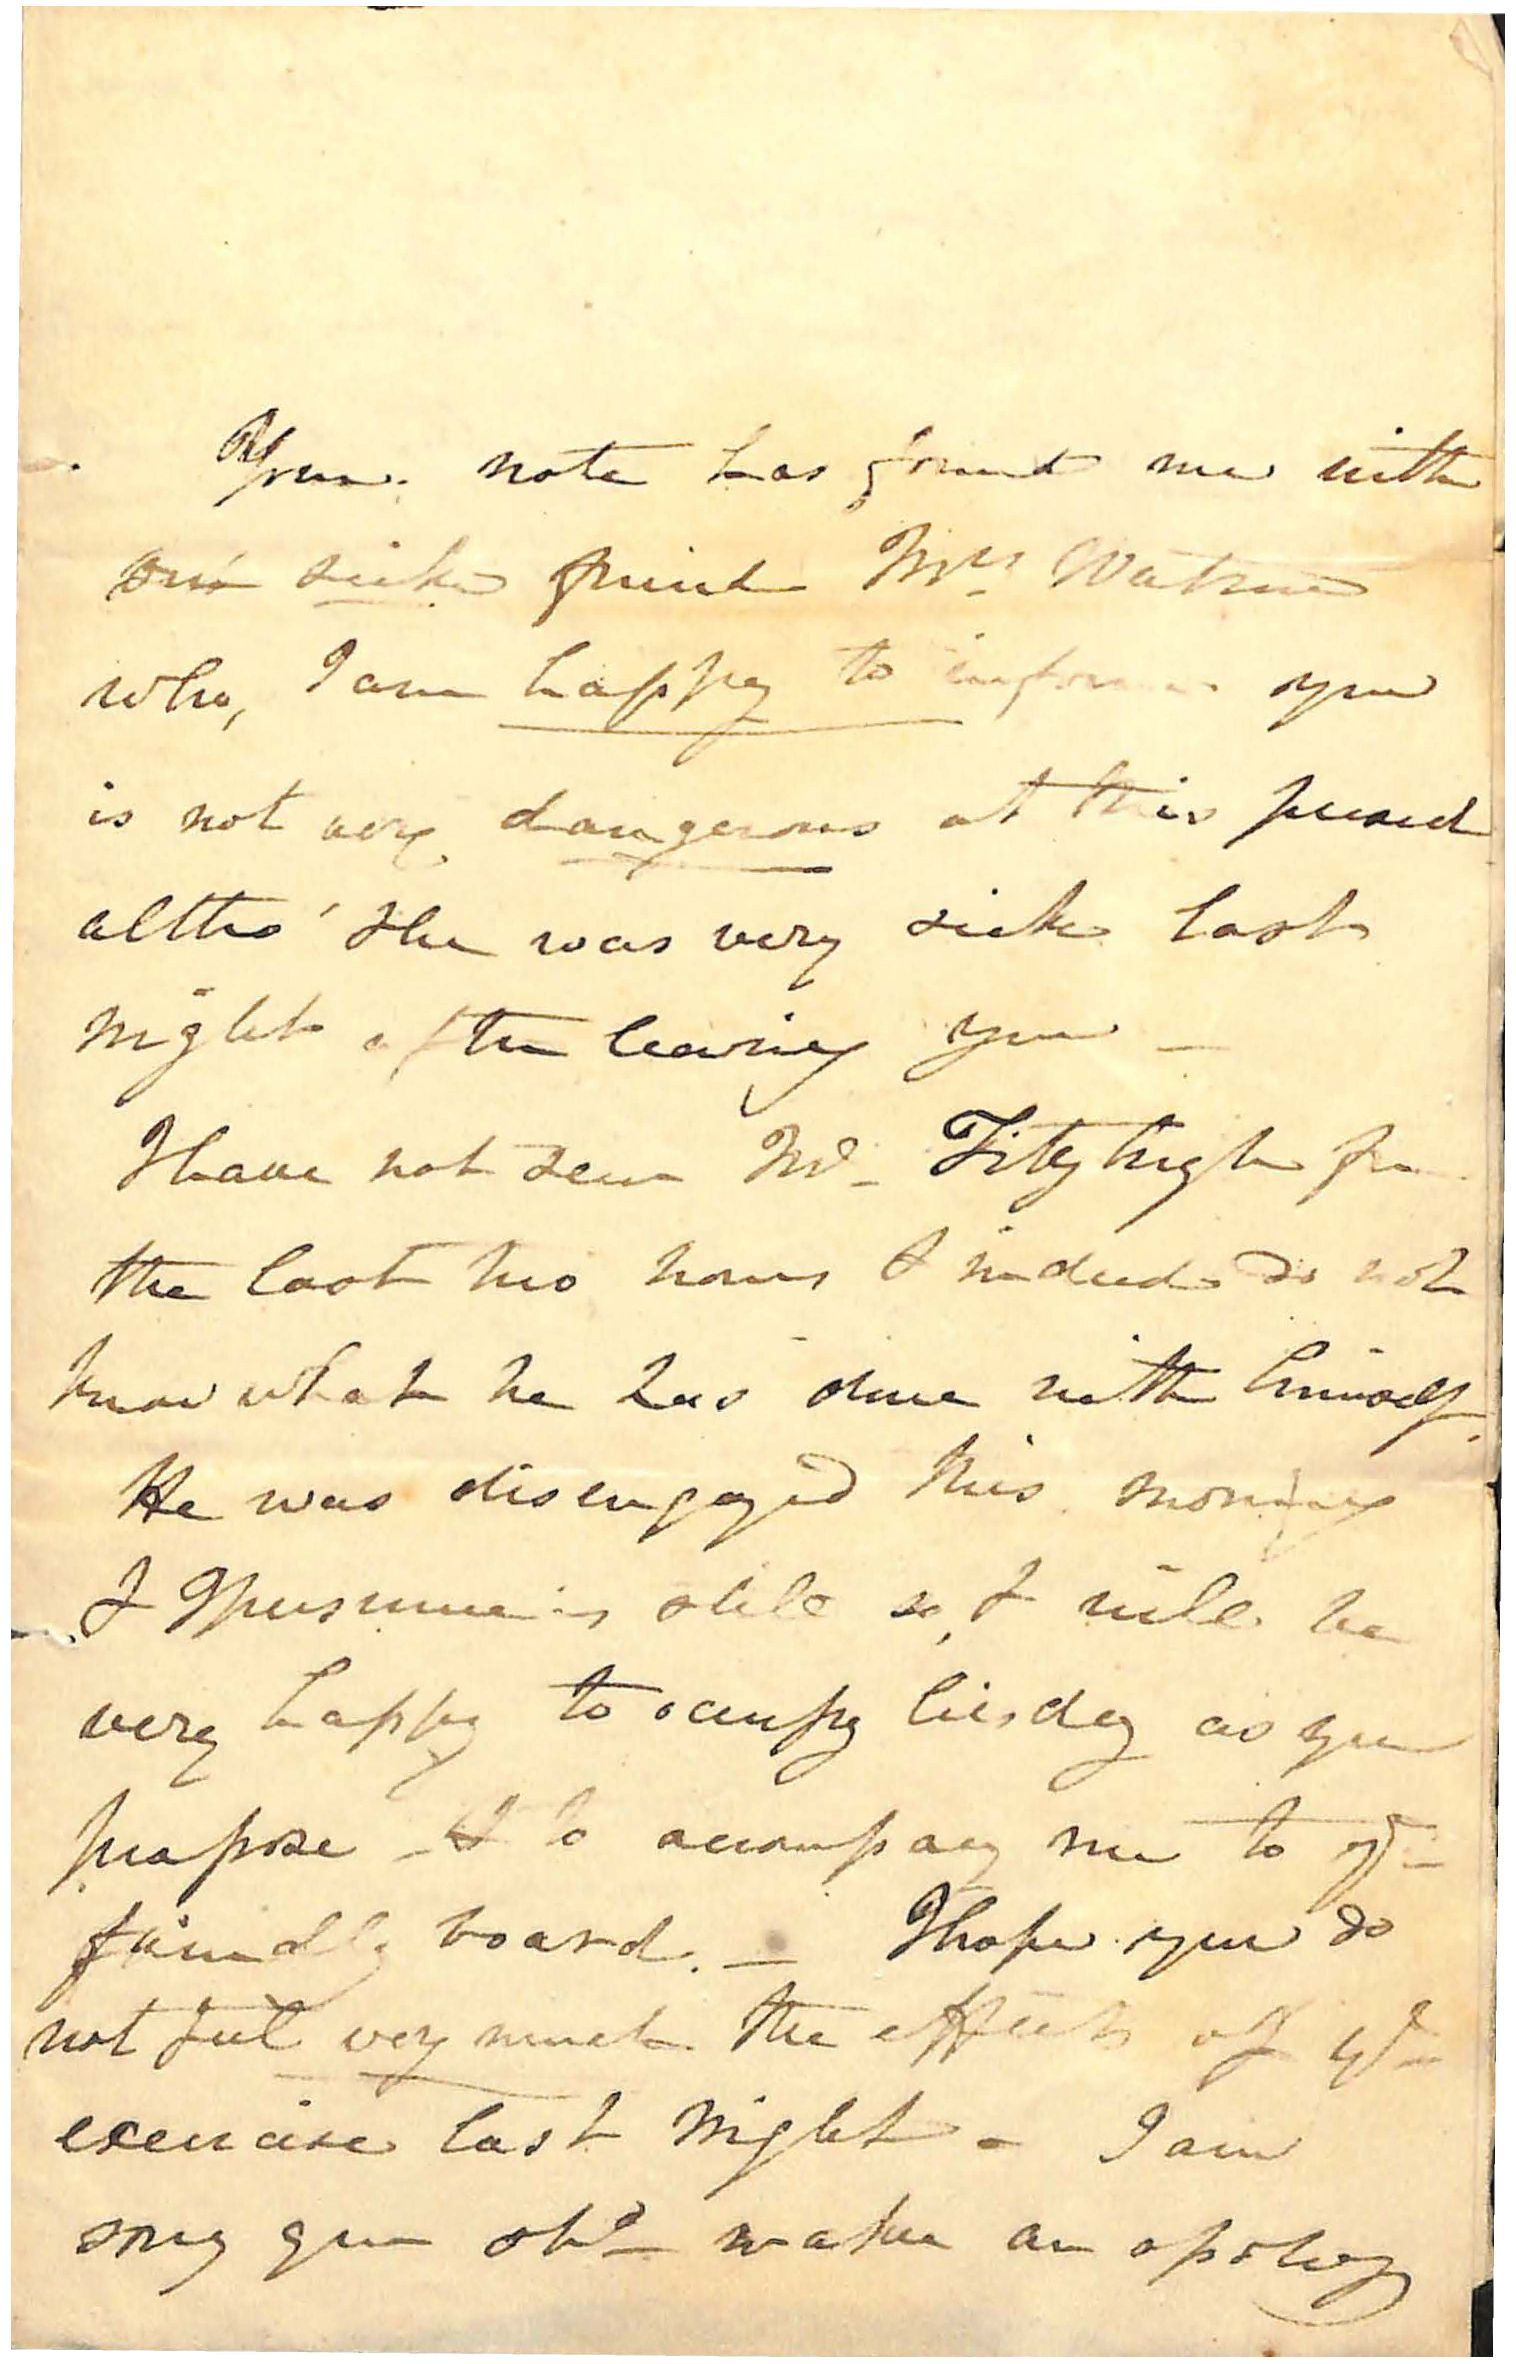 Your note has found me with
our sick friend Mrs Watson
who, I am happy to inform you
is not very dangerous at this period
altho' she was very sick last
night after leaving you —
I have not seen Mr Fitzhugh for
the last two hours & indeed do not
know what he has done with himself.
He was disengaged this morning
I presume is still so, & will be
very happy to occupy his day as you
propose & to accompany me to yr
friendly board. — I hope you do
not feel very much the effects of yr
exercise last night - I am
sorry you shd make an apology